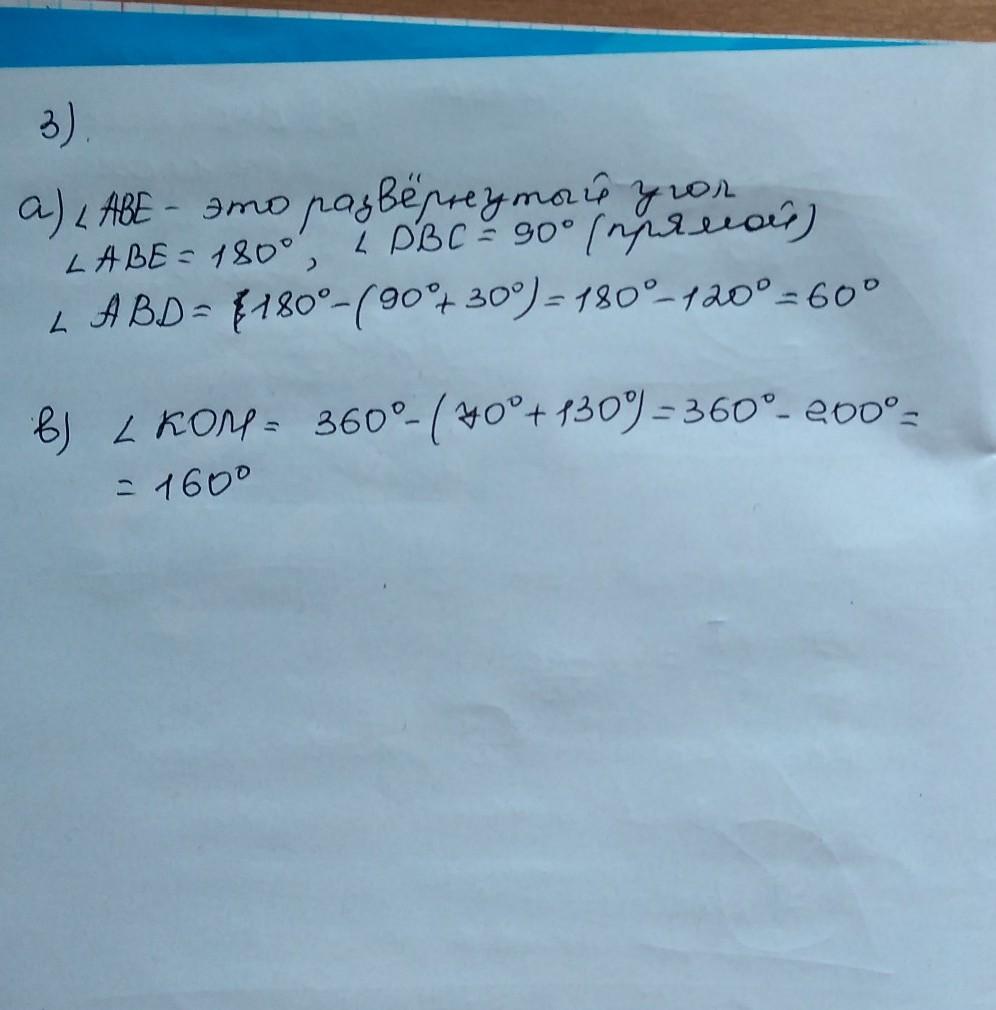 3).
а) ∠ ABE - это развёрнутый угол
∠ ABE = 180°, ∠ DBC = 90° (прямой)
∠ ABD = 180° - (90° + 30°) = 180° - 120° = 60°
в) ∠ KOM = 360° - (70° + 130°) = 360° - 200° =
= 160°